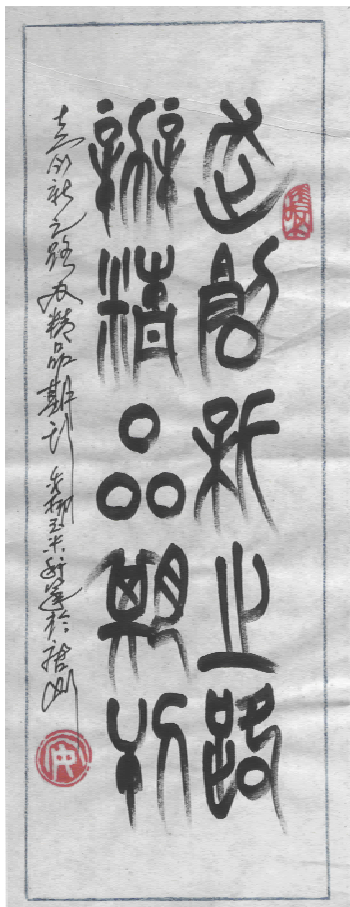 走创新之路
辦精品期刊
走创新之路 办精品期刊